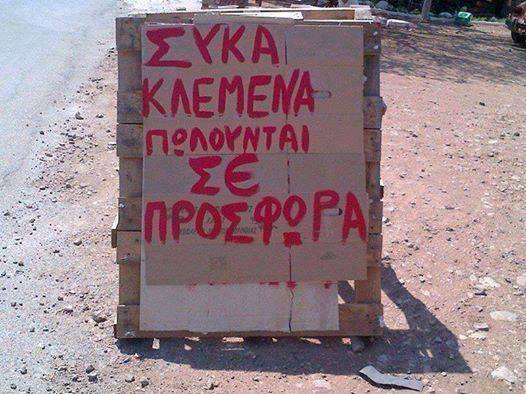 ΣΥΚΑ
ΚΛΕΜΕΝΑ
ΠΩΛΟΥΝΤΑΙ
ΣΕ
ΠΡΟΣΦΩΡΑ